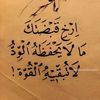 إرخ قبضتك
ما لا يحفظه الودّ
لا تُبقيه القوة!